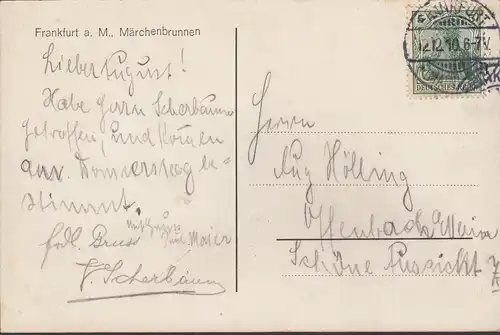 Frankfurt a. M., Märchenbrunnen
Lieber August!
Habe Herrn Scherbaum
getroffen, und kommen
am Donnerstag be-
stimmt.
frdl. Gruss
Maier
F. Scherbaum
FRANKFURT
12.12.10.6-7V.
DEUTSCHES REICH
Herrn
Aug Hölling
Offenbach Main
Schöne Aussicht 7